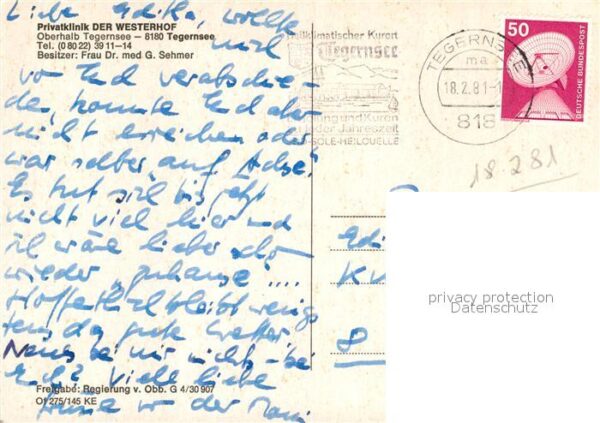 Privatklinik DER WESTERHOF
Oberhalb Tegernsee – 8180 Tegernsee
Tel. (0 80 22) 39 11–14
Besitzer: Frau Dr. med G. Sehmer
Liebe wollte
mich
von Euch verabschie-
den, konnte Euch aber
nicht erreichen oder
war selber auf Achse!
Es tut sich bis jetzt
nicht viel hier und
ich wäre lieber schon
wieder zuhause ....
Hoffentlich bleibt wenigs
tens das gute Wetter.
Neues bei mir nichts – bei
Euch? Viele liebe
Grüße von der
Freigabe: Regierung v. Obb. G 4/30 907
Of 275/145 KE
heilklimatischer Kurort
Tegernsee
und Kuren
jeder Jahreszeit
JOD-SOLE-HEILQUELLE
TEGERNSEE
ma
18.2.81-1
818
50
DEUTSCHE BUNDESPOST
18.2.81
8
privacy protection
Datenschutz